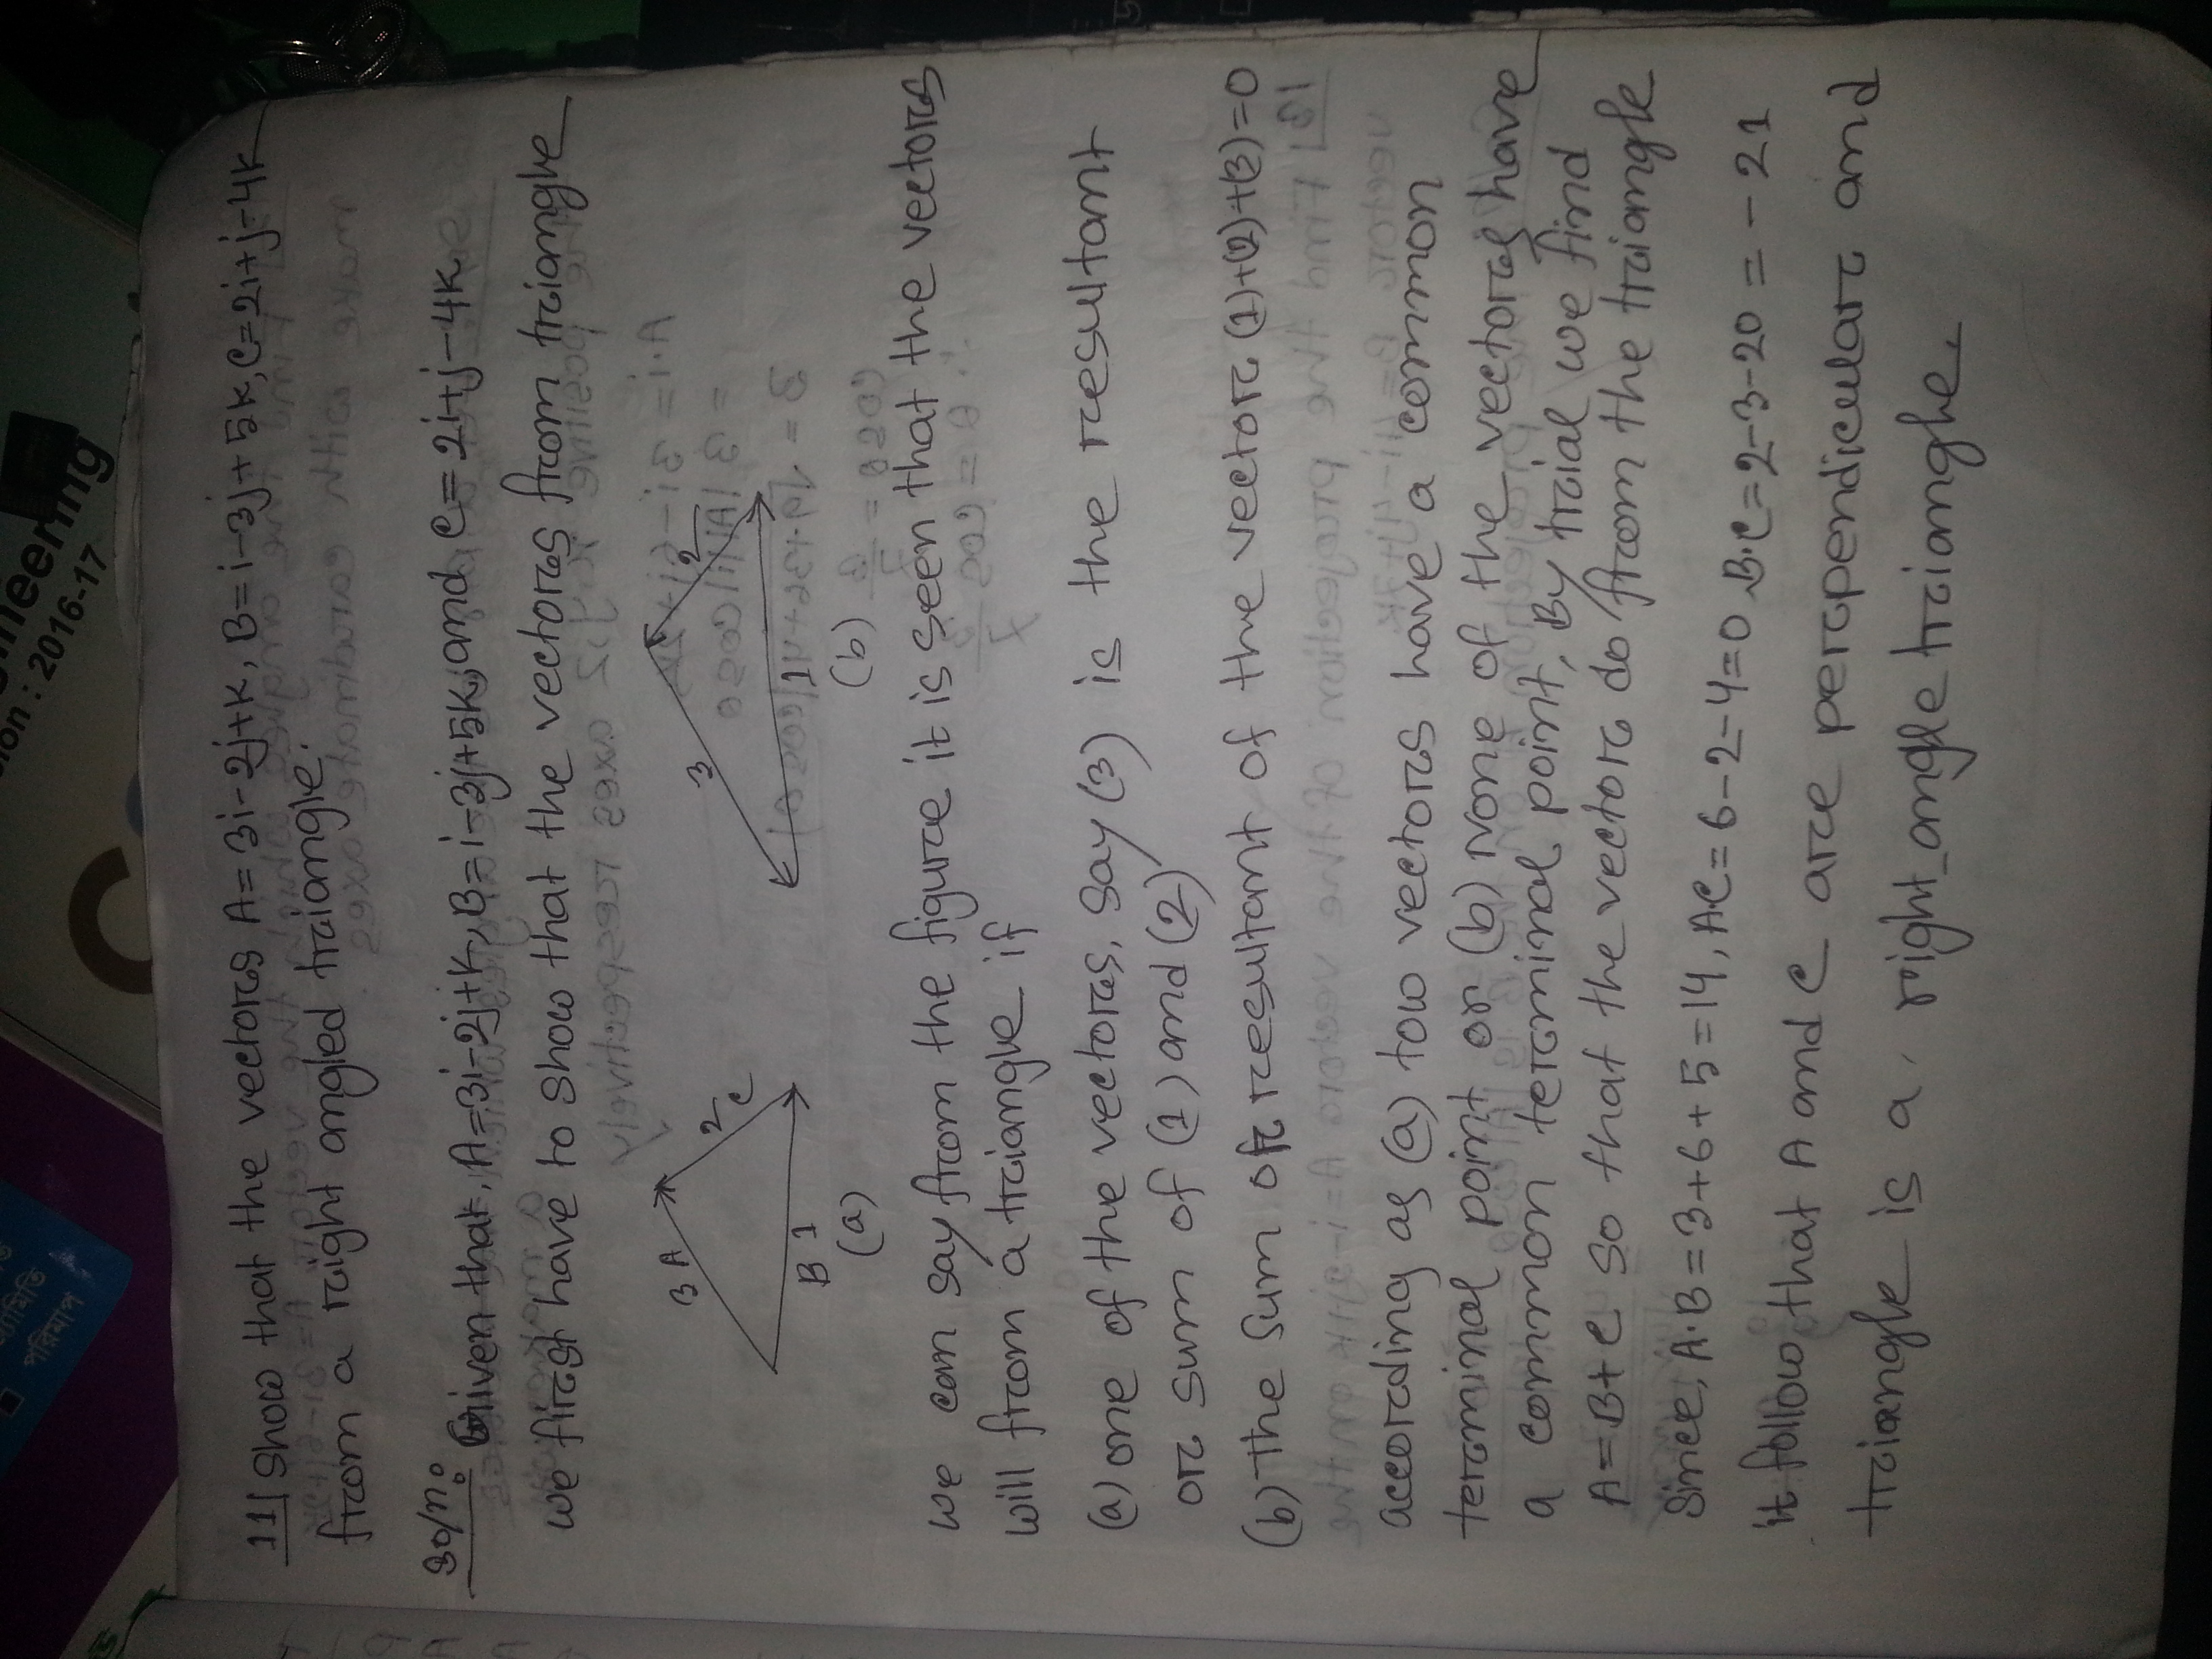 জ্যামিতি
পরিমাপ
ineering
sion : 2016-17
11| Show that the vectors A= 3i-2j+k, B=i-3j+5k, C=2i+j-4k
from a right angled triangle.
Soln:
Given that, A=3i-2j+k, B=i-3j+5k, and C=2i+j-4k
we first have to show that the vectores from triangle
3 A
2
C
B 1
(a)
3
2
1
(b)
we can say from the figure it is seen that the vectors
will from a triangle if
(a) one of the vectores, say (3) is the resultant
or sum of (1) and (2)
(b) The sum or resultant of the vector (1)+(2)+(3)=0
according as (a) tow vectors have a common
terminal point or (b) None of the vectores have
a common terminal point, By trial we find
A=B+C so that the vector do from the triangle
Since, A·B=3+6+5=14, A·C=6-2-4=0 B·C=2-3-20=-21
it follow that A and C are perpendicular and
triangle is a right-angle triangle.